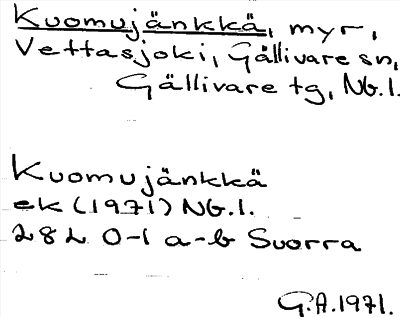 Kuomujänkkä, myr,
Vettasjoki, Gällivare sn,
Gällivare tg, Nb. l.
Kuomujänkkä
ek (1971) Nb. l.
28L 0-1 a-b Suorra
G.A. 1971.